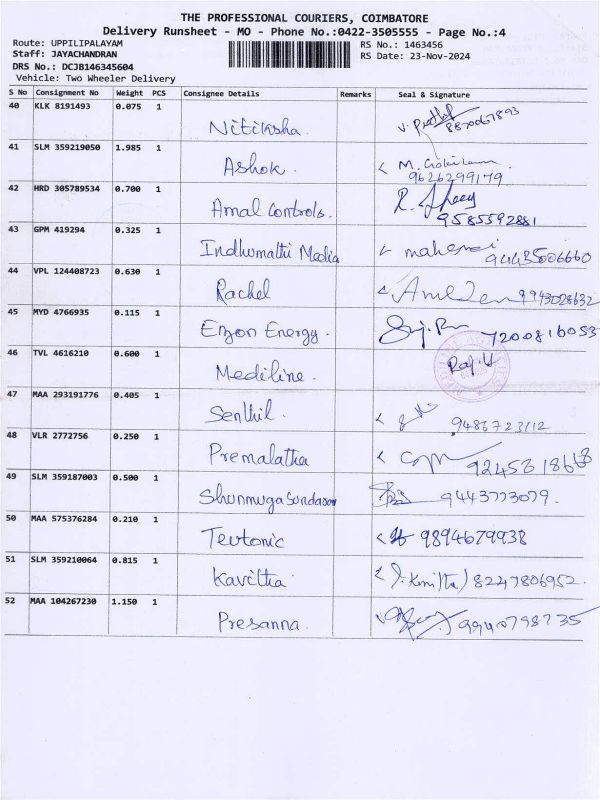 THE PROFESSIONAL COURIERS, COIMBATORE
Delivery Runsheet - MO - Phone No.:0422-3505555 - Page No.:4
Route: UPPILIPALAYAM
Staff: JAYACHANDRAN
DRS No.: DCJB146345604
Vehicle: Two Wheeler Delivery
RS No.: 1463456
RS Date: 23-Nov-2024
S No Consignment No Weight PCS Consignee Details Remarks Seal & Signature
40 KLK 8191493 0.075 1 Nitiksha. 8870067893
41 SLM 359219050 1.985 1 Ashok. 9626299179
42 HRD 305789534 0.700 1 Amal Controls. 9585592881
43 GPM 419294 0.325 1 Indhumathi Media 9443506660
44 VPL 124408723 0.630 1 Rachel 9943028632
45 MYD 4766935 0.115 1 Enzon Energy. 7200816053
46 TVL 4616210 0.600 1 Mediline.
47 MAA 293191776 0.405 1 Senthil. 9486723112
48 VLR 2772756 0.250 1 Premalatha 9245318668
49 SLM 359187003 0.500 1 Shunmugasundaram 9443773079.
50 MAA 575376284 0.210 1 Teutonic 9894679938
51 SLM 359210064 0.815 1 Kavitha 8247806952.
52 MAA 104267230 1.150 1 Presanna. 9940798735